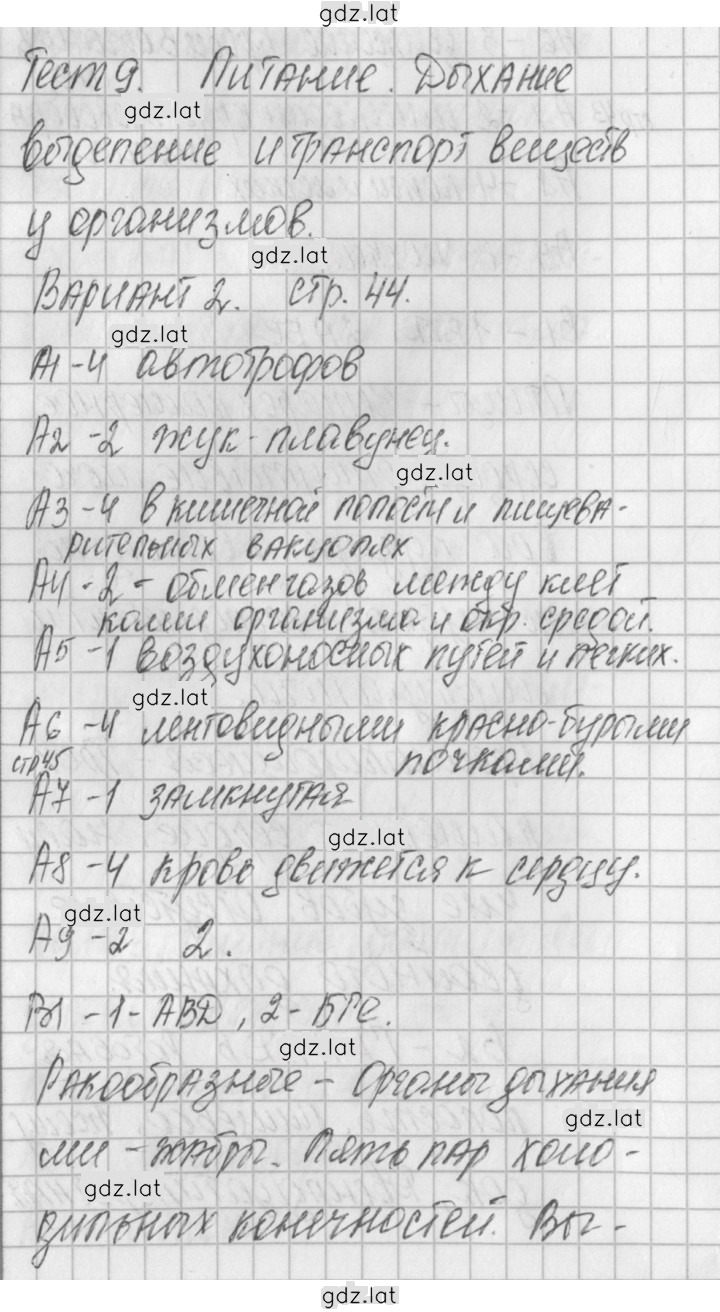 gdz.lat
Тест 9. Питание. Дыхание
gdz.lat
выделение и транспорт веществ
у организмов.
gdz.lat
Вариант 2. стр. 44.
gdz.lat
А1-4 автотрофов
А2-2 жук-плавунец.
gdz.lat
А3-4 в кишечной полости и пищева-
рительных вакуолях
А4-2-обмен газов между клет
ками организма и окр. средой.
А5-1 воздухоносных путей и легких.
gdz.lat
А6-4 лентовидными красно-бурыми
стр45 почками.
А7-1 замкнутая
gdz.lat
А8-4 кровь движется к сердцу.
gdz.lat
А9-2 2.
В1-1-АВД, 2-БГЕ.
gdz.lat
Ракообразные - Органы дыхания
gdz.lat
ми-жабры. Пять пар ходо-
gdz.lat
дильных конечностей. Вы-
gdz.lat